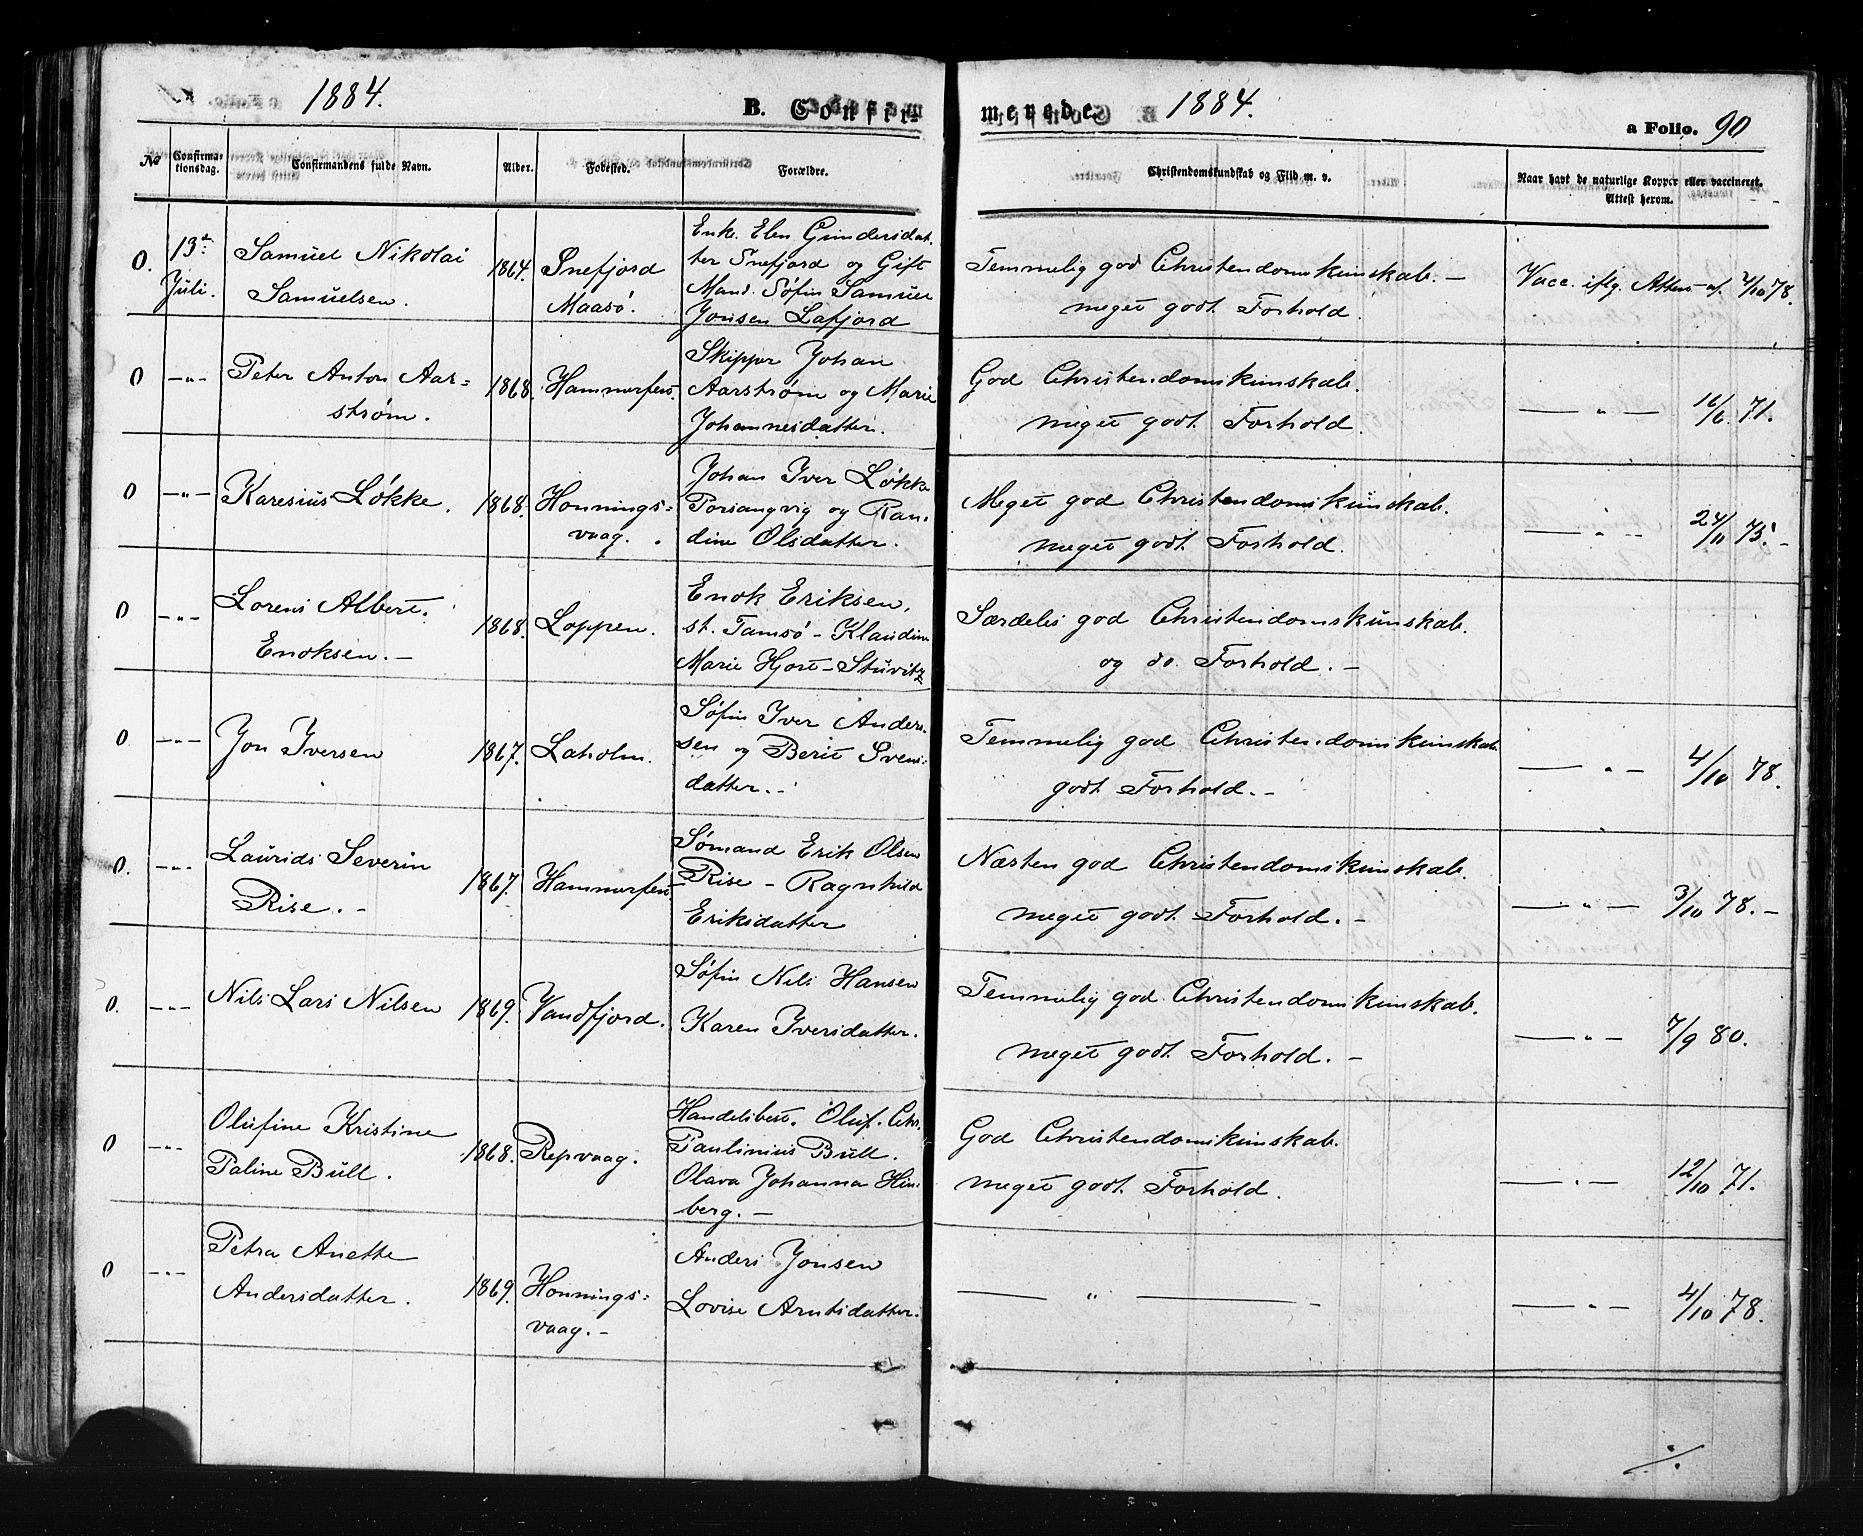 1884.
B. Confir-
merede.
1884.
a Folio. 90
No
Confirma-
tionsdag.
Confirmandens fulde Navn.
Alder.
Fødested.
Forældre.
Christendomskundskab og Flid m. v.
Naar havt de naturlige Kopper eller vaccineret.
Attest herom.
0.
13de
Juli.
Samuel Nikolai
Samuelsen.
1864.
Snefjord
Maasö.
Enke. Elen Gundersdat-
ter Snefjord og Gift
Mand. Söfin Samuel
Jonsen Lafjord
Temmelig god Christendomskunskab. —
meget godt Forhold.
Vacc. iflg. Attest af 4/10 78.
0
—"—
Peter Anton Aar=
strøm.
1868.
Hammerfest.
Skipper Johan
Aarstrøm og Marie
Johannesdatter.
God Christendomskunskab.
meget godt Forhold.
— " — 16/6 71.
0
—"—
Karesius Løkke.
1868.
Honnings=
vaag.
Johan Iver Løkke
Porsangvig og Ran-
dine Olsdatter.
Meget god Christendomskunskab.
meget godt Forhold.
— " — 24/10 75. —
0
—"—
Lorens Albert.
Enoksen. —
1868.
Loppen.
Enok Eriksen,
st. Tamsö - Klaudine
Marie Hjort - Stuvitz
Særdeles god Christendomskunskab.
og do. Forhold. —
0
—"—
Jon Iversen
1867.
Laholm.
Söfin Iver Ander-
sen og Berit Svens-
datter. —
Temmelig god Christendomskunskab
godt Forhold. —
— " — 4/10 78.
0.
—"—
Laurids Severin
Rise. —
1867.
Hammerfest
Sömand Erik Olsen
Rise - Ragnhild
Eriksdatter
Næsten god Christendomskunskab.
meget godt Forhold. —
— " — 3/10 78. —
0.
—"—
Nils Lars Nilsen
1869.
Vandfjord.
Söfin Nils Hansen
Karen Iversdatter.
Temmelig god Christendomskunskab.
meget godt Forhold. —
— " — 7/9 80.
0
—"—
Olufine Kristine
Paline Bull.
1868.
Repvaag.
Handelsbest. Oluf. Chr.
Paulinius Bull.
Olava Johanna Hin-
berg. —
God Christendomskunskab.
meget godt Forhold.
— " — 12/10 71.
0
—"—
Petra Anette
Andersdatter.
1869.
Honnings=
vaag. —
Anders Jonsen
Lovise Arntsdatter.
— " —
— " — 4/10 78.
./.